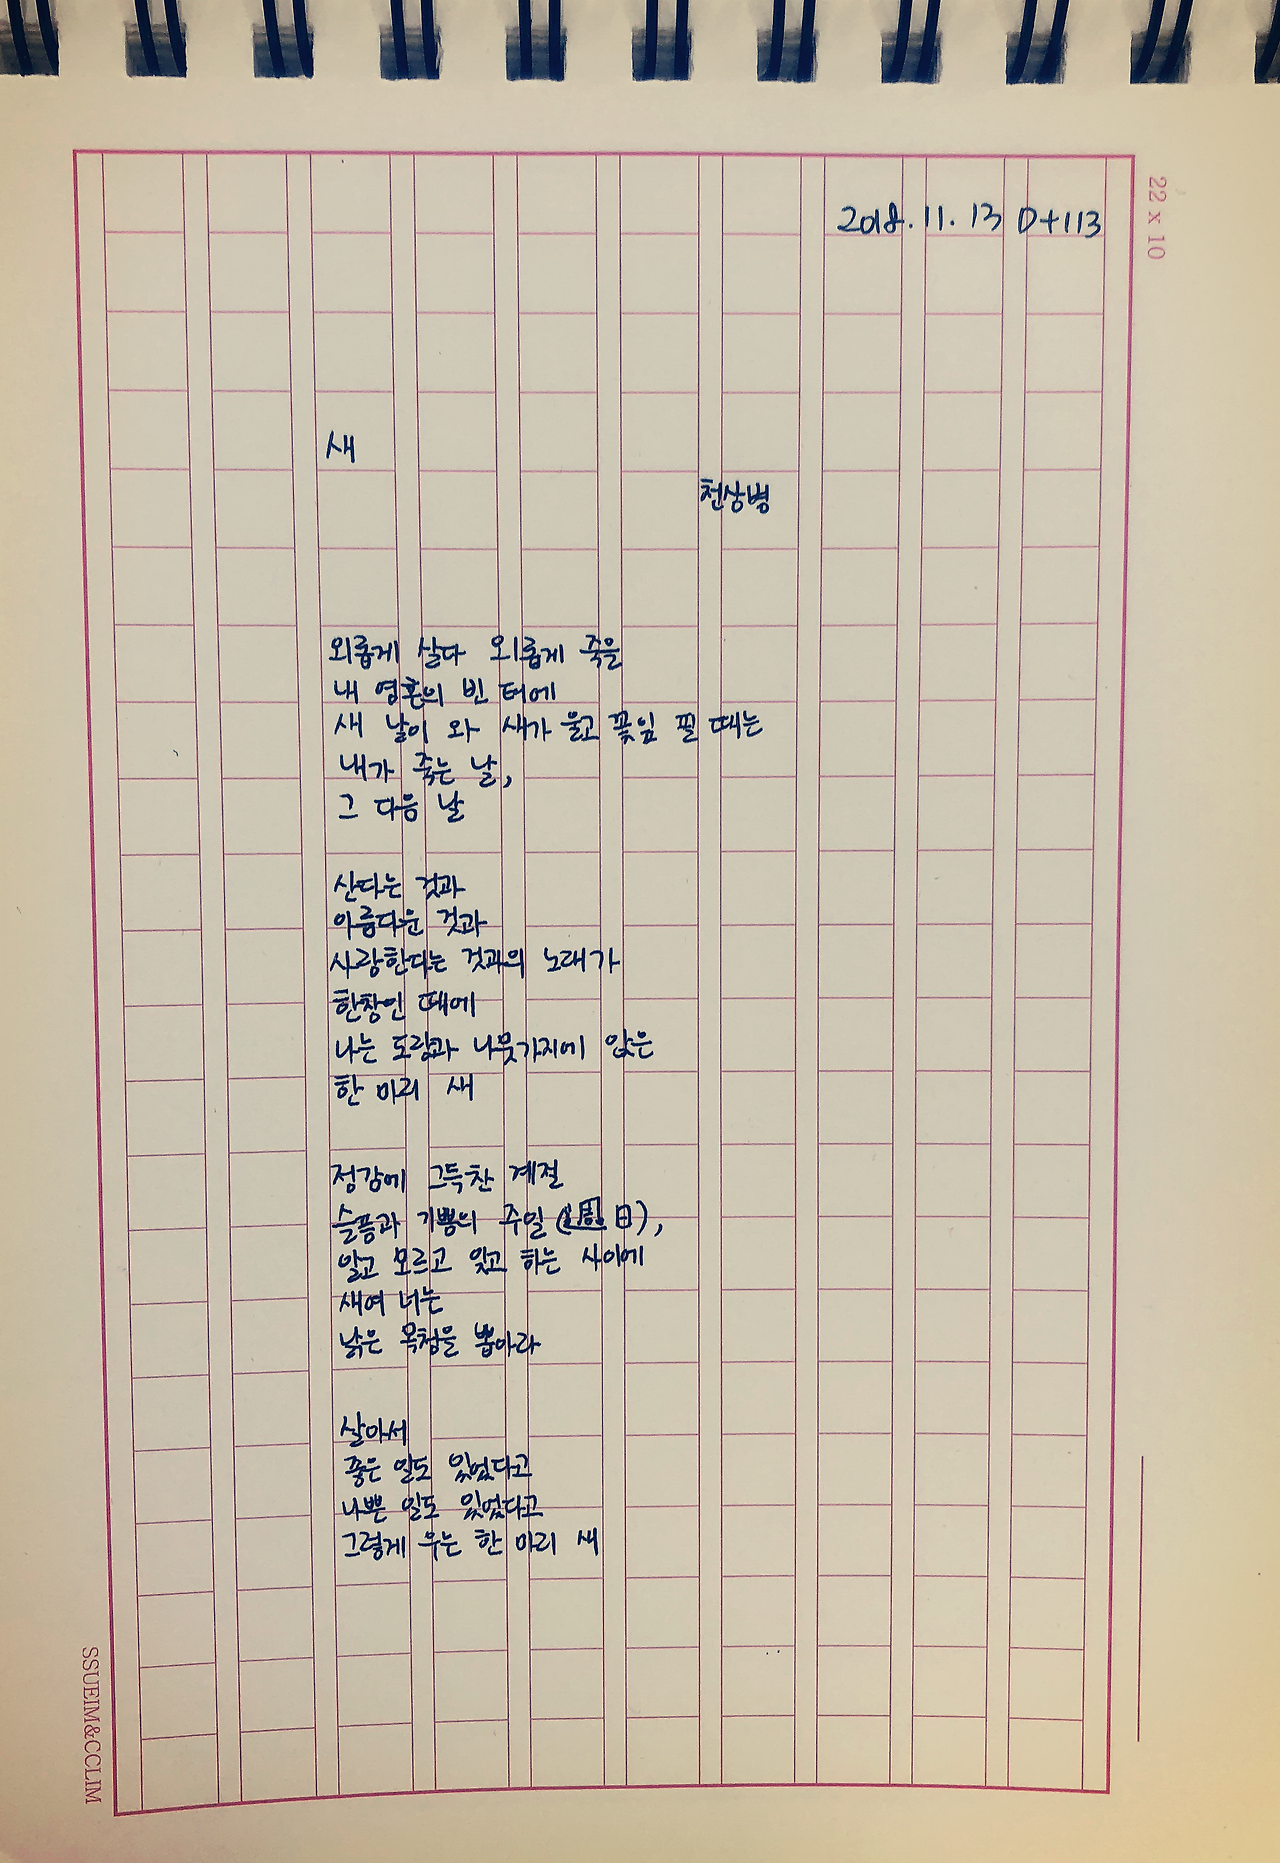 2018. 11. 13 D+113
22 x 10
새
천상병
외롭게 살다 외롭게 죽을
내 영혼의 빈 터에
새 날이 와 새가 울고 꽃잎 필 때는
내가 죽는 날,
그 다음 날
산다는 것과
아름다운 것과
사랑한다는 것과의 노래가
한창인 때에
나는 도랑과 나뭇가지에 앉은
한 마리 새
정감에 그득찬 계절
슬픔과 기쁨의 주일(週日),
알고 모르고 잊고 하는 사이에
새여 너는
낡은 목청을 뽑아라
살아서
좋은 일도 있었다고
나쁜 일도 있었다고
그렇게 우는 한 마리 새
SSUEIM&CCLIM